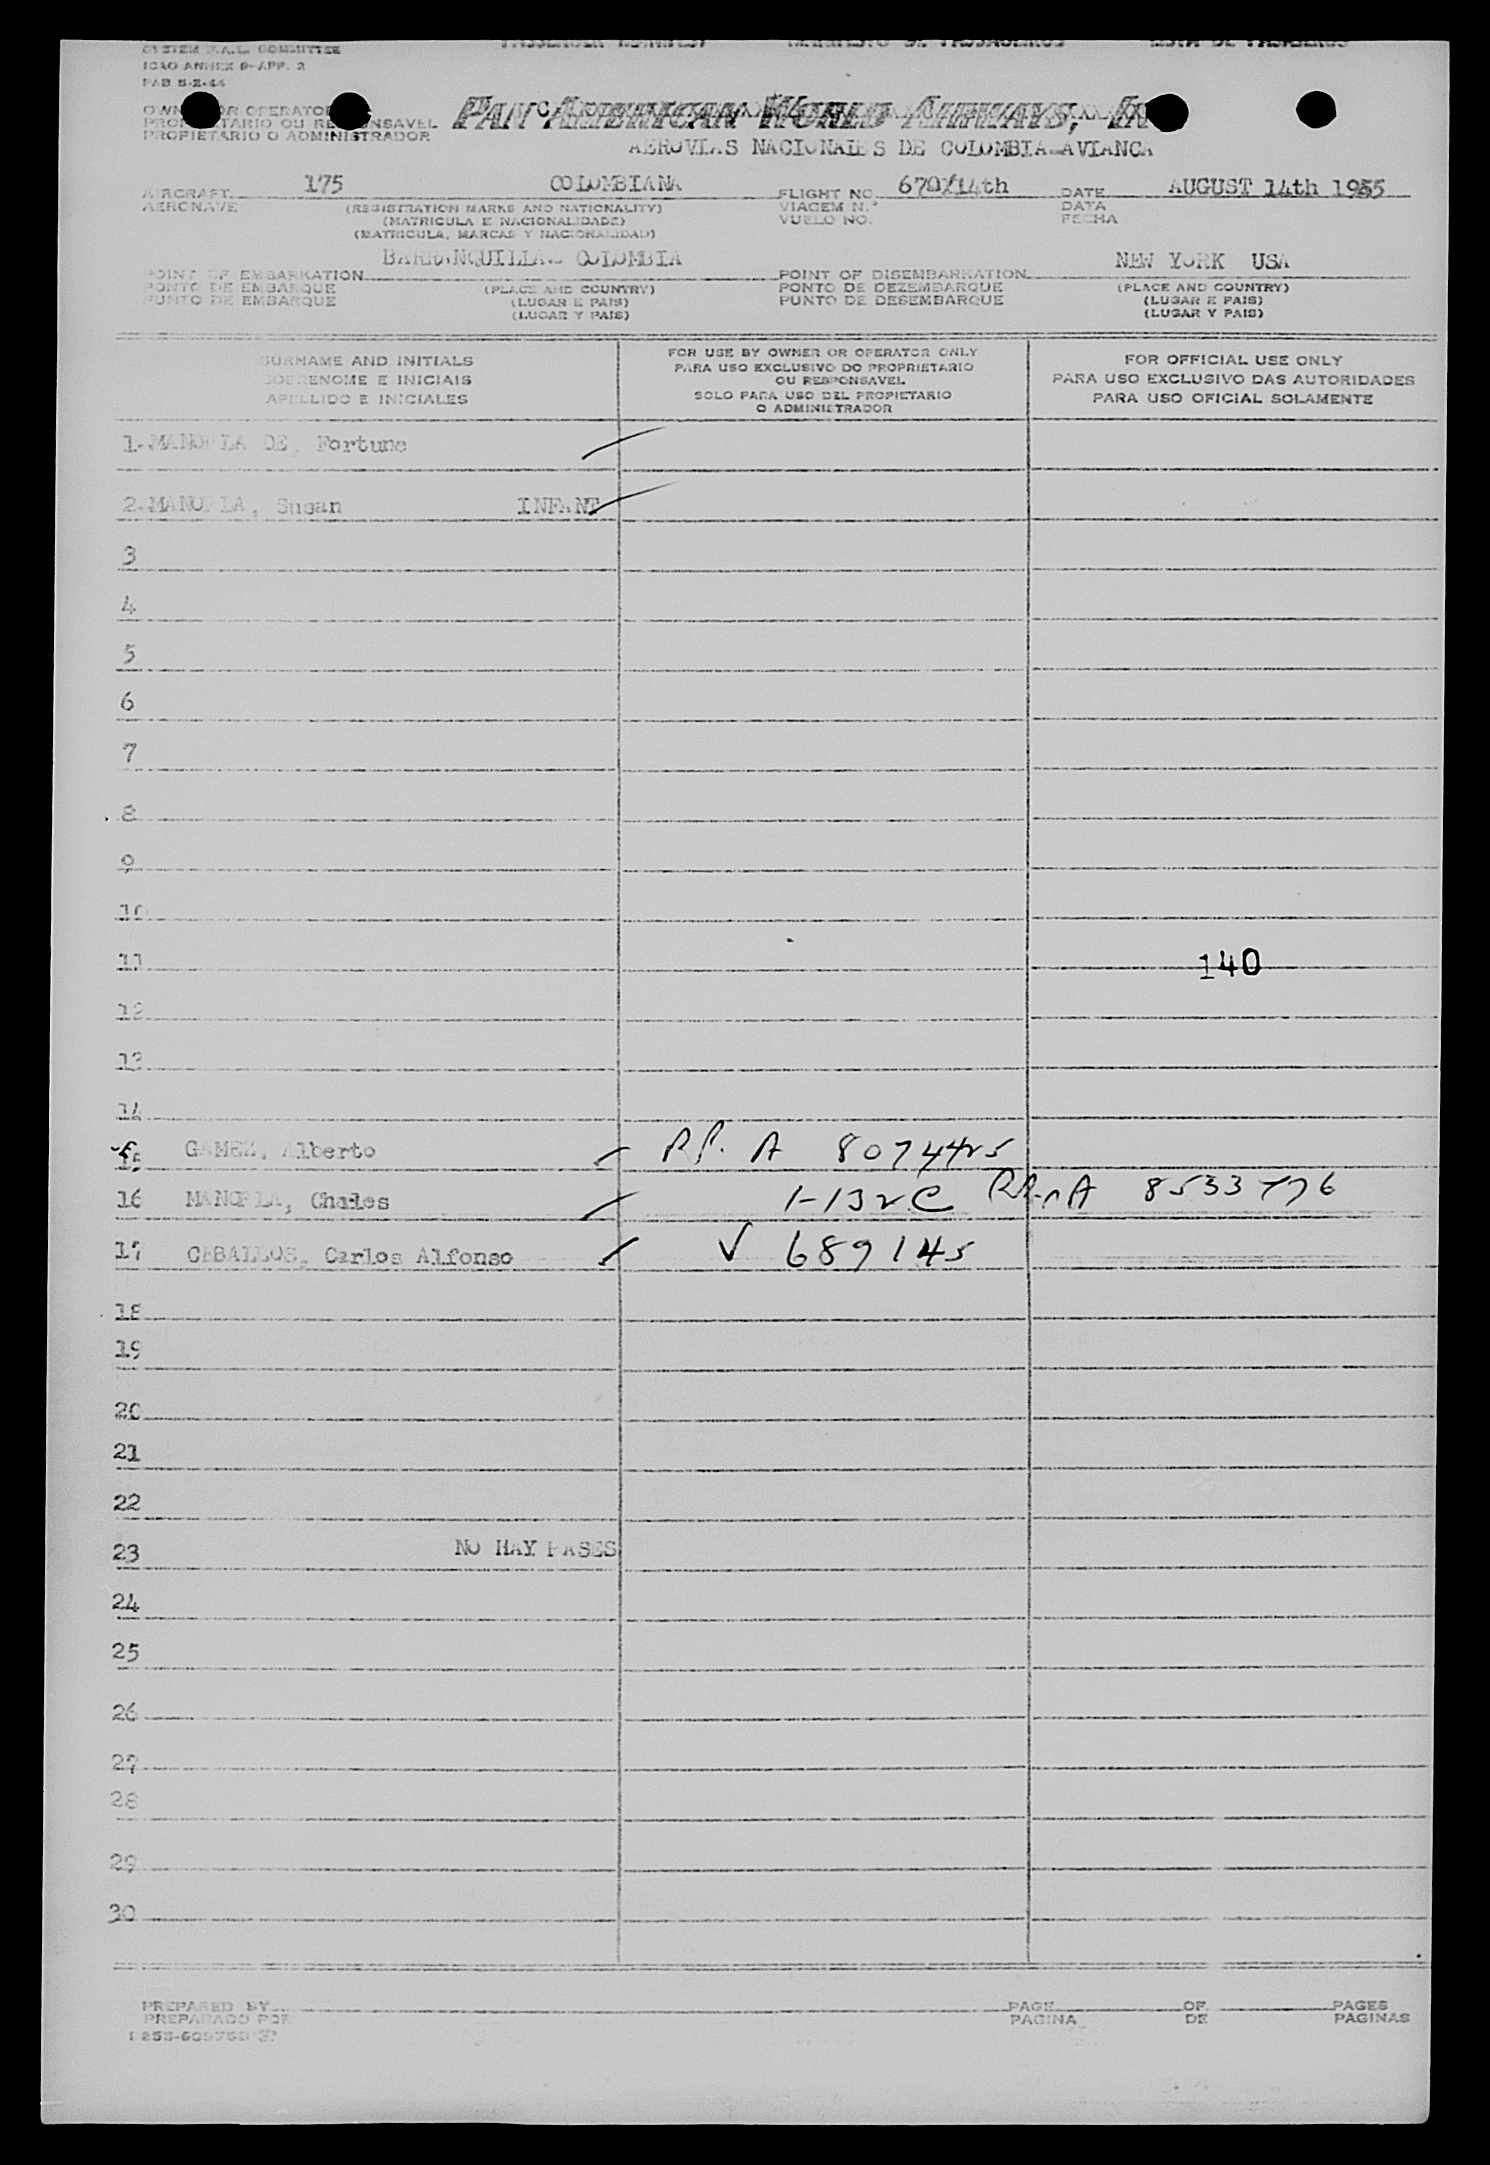 SYSTEM F.A.L. COMMITTEE PASSENGER MANIFEST MANIFESTO DE PASSAGEIROS LISTA DE PASAJEROS
ICAO ANNEX 9-APP. 3
PAB 5-2-44
OWNER OR OPERATOR PAN AMERICAN WORLD AIRWAYS, IN
PROPRIETARIO OU RESPONSAVEL
PROPIETARIO O ADMINISTRADOR
AEROVIAS NACIONALES DE COLOMBIA-AVIANCA
AIRCRAFT 175 COLOMBIANA FLIGHT NO. 670/14th DATE AUGUST 14th 1955
AERONAVE (REGISTRATION MARKS AND NATIONALITY) VIAGEM N.º DATA
(MATRICULA E NACIONALIDADE) VUELO NO. FECHA
(MATRICULA, MARCAS Y NACIONALIDAD)
BARRANQUILLA.- COLOMBIA NEW YORK USA
POINT OF EMBARKATION POINT OF DISEMBARKATION
PONTO DE EMBARQUE (PLACE AND COUNTRY) PONTO DE DEZEMBARQUE (PLACE AND COUNTRY)
PUNTO DE EMBARQUE (LUGAR E PAIS) PUNTO DE DESEMBARQUE (LUGAR E PAIS)
(LUGAR Y PAIS) (LUGAR Y PAIS)
SURNAME AND INITIALS
SOBRENOME E INICIAIS
APELLIDO E INICIALES
FOR USE BY OWNER OR OPERATOR ONLY
PARA USO EXCLUSIVO DO PROPRIETARIO
OU RESPONSAVEL
SOLO PARA USO DEL PROPIETARIO
O ADMINISTRADOR
FOR OFFICIAL USE ONLY
PARA USO EXCLUSIVO DAS AUTORIDADES
PARA USO OFICIAL SOLAMENTE
1.- DE, Fortune
2.- Susan INFANT
3
4
5
6
7
8
9
10
11 140
12
13
14
15 GAMEZ, Alberto A
16 Charles A
17 CEBALLOS, Carlos Alfonso √ 689145
18
19
20
21
22
23 NO HAY PASES
24
25
26
27
28
29
30
PREPARED BY PAGE OF PAGES
PREPARADO POR PAGINA DE PAGINAS